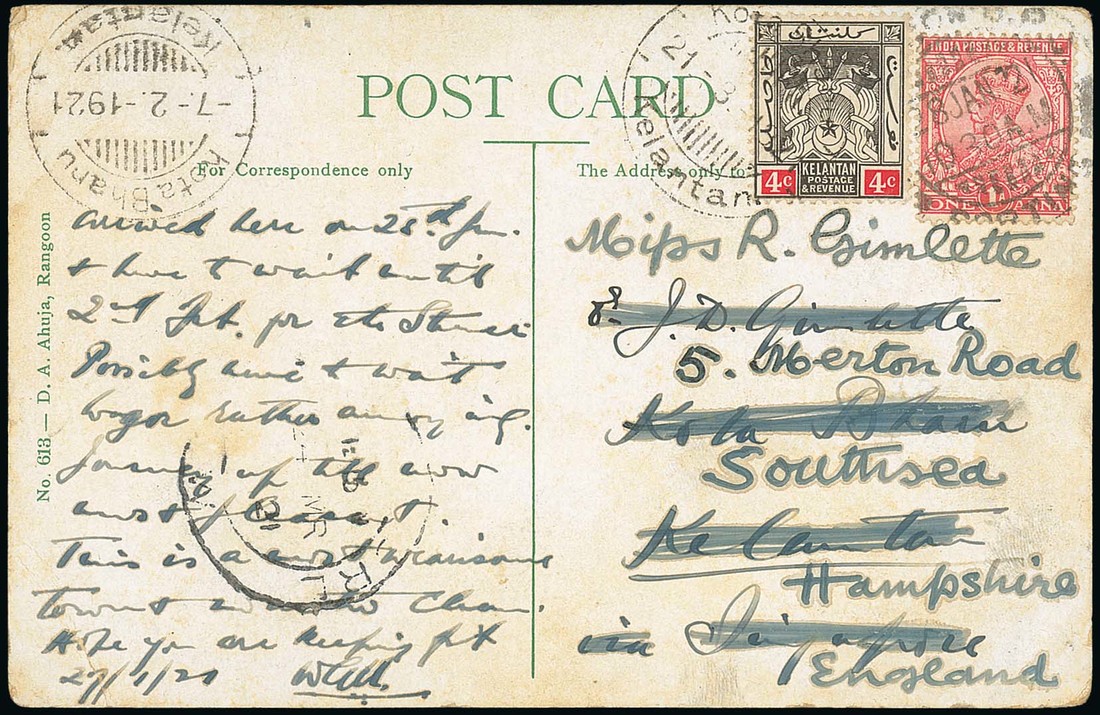 POST CARD
For Correspondence only
The Address only to
No. 613 — D. A. Ahuja, Rangoon
Kota Bharu
-7.-2.-1921
Kelantan
Kota
21
Kelantan
كلنتن
KELANTAN
POSTAGE
& REVENUE
4c
4c
INDIA POSTAGE & REVENUE
ONE 1 ANNA
JAN
arrived here on 28th Jan.
& have to wait until
2nd Feb. for the
Possibly have to wait
longer rather annoying.
Journey up till now
most pleasant.
This is a most
town &
Hope you are keeping fit
27/1/21
MR
21
Miss R. Gimlette
J. D. Gimlette
5. Merton Road
Kota Bharu
Southsea
Kelantan
Hampshire
via Singapore
England